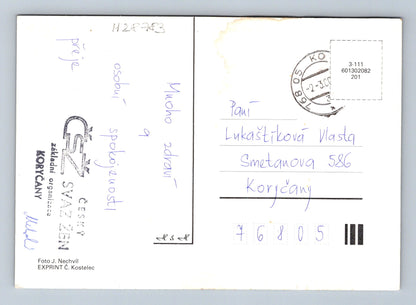 H28753
Mnoho zdraví
a
osobní spokojenosti
přeje
ČSŽ
ČESKÝ
SVAZ ŽEN
základní organizace
KORYČANY
Foto J. Nechvíl
EXPRINT Č. Kostelec
H & H
3-111
601302082
201
768 05 KO
-2.-3.00
Paní
Lukaštíková Vlasta
Smetanova 586
Koryčany
7 6 8 0 5